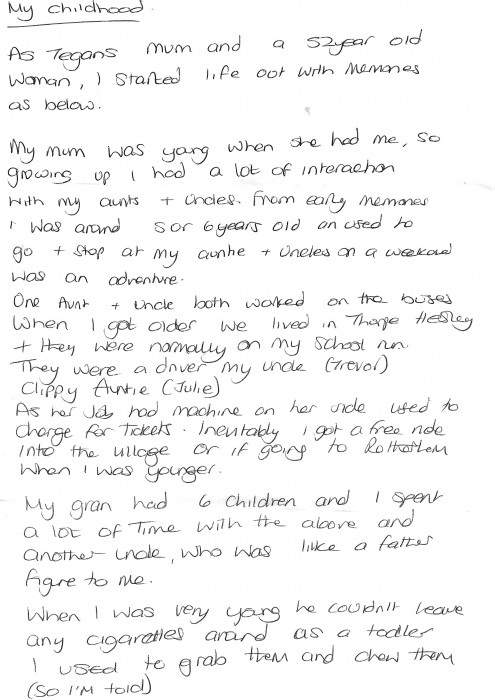 My childhood.
As Tegans mum and a 52year old
Woman, I started life out with Memories
as below.
My mum was young when she had me, so
growing up I had a lot of interaction
with my aunts + Uncles. From early memories
I was around 5 or 6 years old an used to
go + stop at my auntie + Uncles on a weekend
was an adventure.
One Aunt + Uncle both worked on the buses
When I got older we lived in Thorpe Hesley
+ they were normally on my school run.
They were a driver my uncle (Trevor)
Clippy Auntie (Julie)
As her Job had machine on her side used to
charge for Tickets. Inevitably I got a free ride
into the village or if going to Rotherham
when I was younger.
My gran had 6 children and I spent
a lot of Time with the above and
another uncle, who was like a father
figure to me.
When I was very young he couldn't leave
any cigarettes around as a toddler
I used to grab them and chew them
(So I'm told)